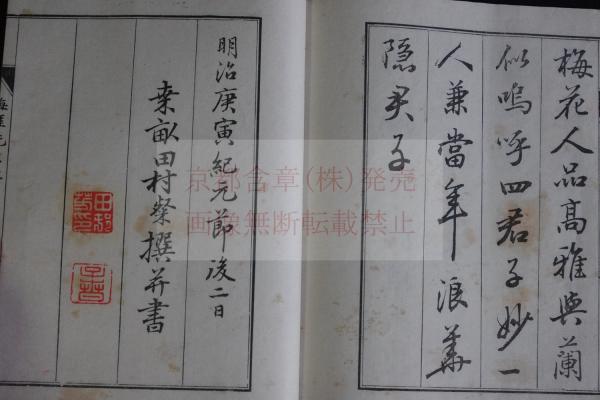 梅花人品高雅與蘭
似嗚呼四君子妙一
人兼當年浪華
隠君子
明治庚寅紀元節後二日
桒畝田村粲撰并書
京都含章(株)発売
画像無断転載禁止